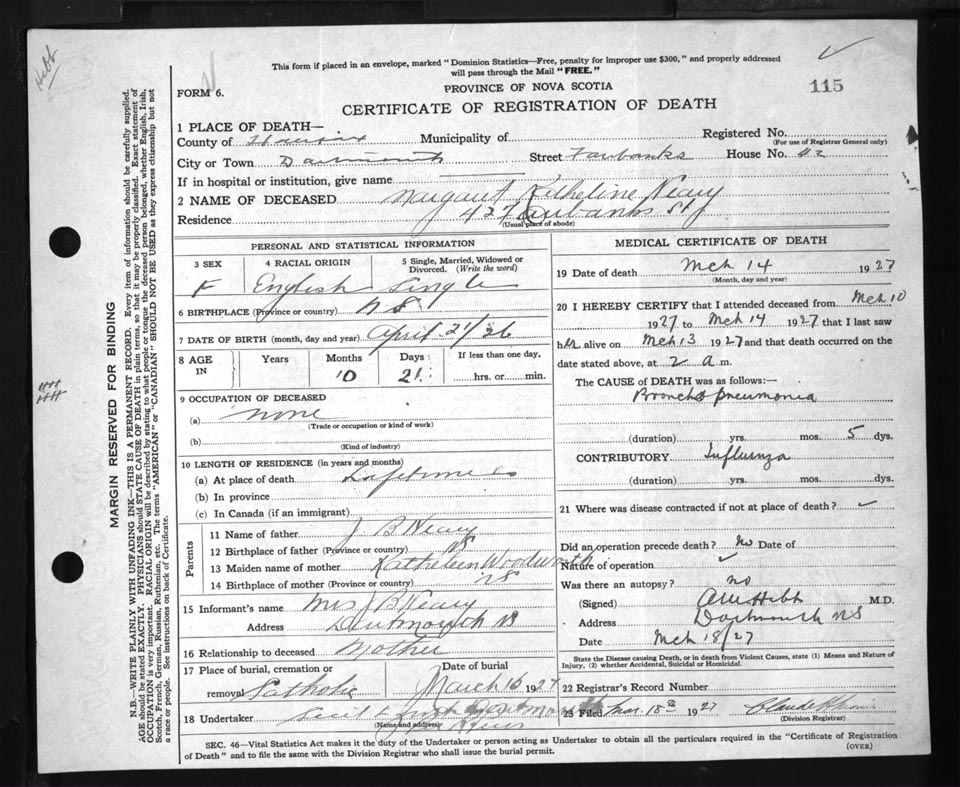 Hebb
This form if placed in an envelope, marked "Dominion Statistics—Free, penalty for improper use $300," and properly addressed
will pass through the Mail "FREE."
FORM 6.
PROVINCE OF NOVA SCOTIA
115
CERTIFICATE OF REGISTRATION OF DEATH
1 PLACE OF DEATH—
County of Halifax Municipality of Registered No.
(For use of Registrar General only)
City or Town Dartmouth Street Fairbanks House No. 42
If in hospital or institution, give name
2 NAME OF DECEASED Margaret Katheline Neary
Residence 42 Fairbanks St
(Usual place of abode)
PERSONAL AND STATISTICAL INFORMATION
3 SEX 4 RACIAL ORIGIN 5 Single, Married, Widowed or
Divorced. (Write the word)
F English Single
6 BIRTHPLACE (Province or country) N S
7 DATE OF BIRTH (month, day and year) April 21/26
8 AGE IN Years Months Days If less than one day,
10 21 hrs. or min.
9 OCCUPATION OF DECEASED
(a) none
(Trade or occupation or kind of work)
(b)
(Kind of industry)
10 LENGTH OF RESIDENCE (in years and months)
(a) At place of death Lifetime
(b) In province
(c) In Canada (if an immigrant)
Parents
11 Name of father J B Neary
12 Birthplace of father (Province or country) NS
13 Maiden name of mother Kathleen Woodworth
14 Birthplace of mother (Province or country) NS
15 Informant's name Mrs J B Neary
Address Dartmouth NS
16 Relationship to deceased Mother
17 Place of burial, cremation or Date of burial
removal Catholic March 16 1927
18 Undertaker
(Name and address)
MEDICAL CERTIFICATE OF DEATH
19 Date of death Mch 14 1927
(Month, day and year)
20 I HEREBY CERTIFY that I attended deceased from Mch 10
1927 to Mch 14 1927 that I last saw
her alive on Mch 13 1927 and that death occurred on the
date stated above, at 2 a m.
The CAUSE of DEATH was as follows:—
Broncho pneumonia
(duration) yrs. mos. 5 dys.
CONTRIBUTORY Influenza
(duration) yrs. mos. dys.
21 Where was disease contracted if not at place of death?
Did an operation precede death? No Date of
Nature of operation
Was there an autopsy? no
(Signed) Hebb M.D.
Address Dartmouth NS
Date Mch 18/27
State the Disease causing Death, or in death from Violent Causes, state (1) Means and Nature of
Injury, (2) whether Accidental, Suicidal or Homicidal.
22 Registrar's Record Number
23 Filed Mar. 18th 1927
(Division Registrar)
SEC. 46—Vital Statistics Act makes it the duty of the Undertaker or person acting as Undertaker to obtain all the particulars required in the "Certificate of Registration
of Death" and to file the same with the Division Registrar who shall issue the burial permit.
(OVER)
MARGIN RESERVED FOR BINDING
N.B.—WRITE PLAINLY WITH UNFADING INK—THIS IS A PERMANENT RECORD. Every item of information should be carefully supplied.
AGE should be stated EXACTLY. PHYSICIANS should STATE CAUSE OF DEATH in plain terms, so that it may be properly classified. Exact statement of
OCCUPATION is very important. RACIAL ORIGIN will be described by stating to what people or tongue the deceased person belonged, whether English, Irish,
Scotch, French, German, Russian, Ruthenian, etc. The terms "AMERICAN" or "CANADIAN" SHOULD NOT BE USED as they express citizenship but not
a race or people. See instructions on back of Certificate.